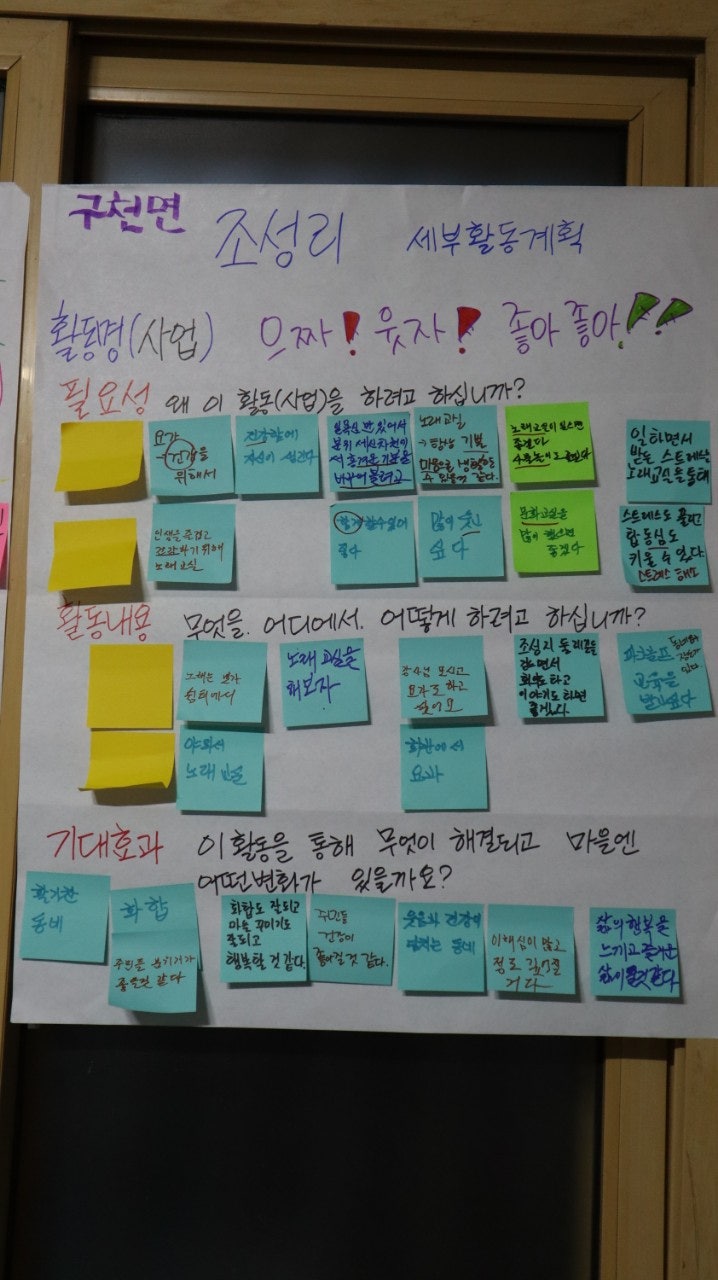 구천면
조성리 세부활동계획
활동명(사업) 으짜! 웃자! 좋아 좋아!!!
필요성 왜 이 활동(사업)을 하려고 하십니까?
요가
→건강을
위해서
건강함에
자신이 생긴다
노래교실
→항상 기쁜
마음으로 생활할
수 있을것 같다.
노래교실이 있으면
좋겠다
일하면서
받는 스트레스를
노래교실을 통해
인생을 즐겁고
건강하기 위해
노래교실
함께 할 수 있어
좋다
많이 웃고
싶다
문화교실을
많이 했으면
좋겠다
스트레스도 풀리고
협동심도
키울 수 있다.
스트레스 해소
활동내용 무엇을. 어디에서. 어떻게 하려고 하십니까?
쉼터에서
노래 교실을
해보자
강사님 모시고
요가도 하고
싶어요
조성리 둘레길을
걸으면서
회관도 타고
이야기도 하면
좋겠다.
파크골프
교육을
받고싶다
야외서
노래교실
회관에서
요가
기대효과 이 활동을 통해 무엇이 해결되고 마을엔
어떤변화가 있을까요?
활기찬
동네
화합
주민들 분위기가
좋을것 같다
화합도 잘되고
마을 꾸미기도
잘되고
행복할 것 같다.
주민들
건강이
좋아질것 같다.
웃음과 건강이
넘치는 동네
이해심이 많고
정도 깊어질
거다
삶의 행복을
느끼고 즐거운
삶이 될것같다